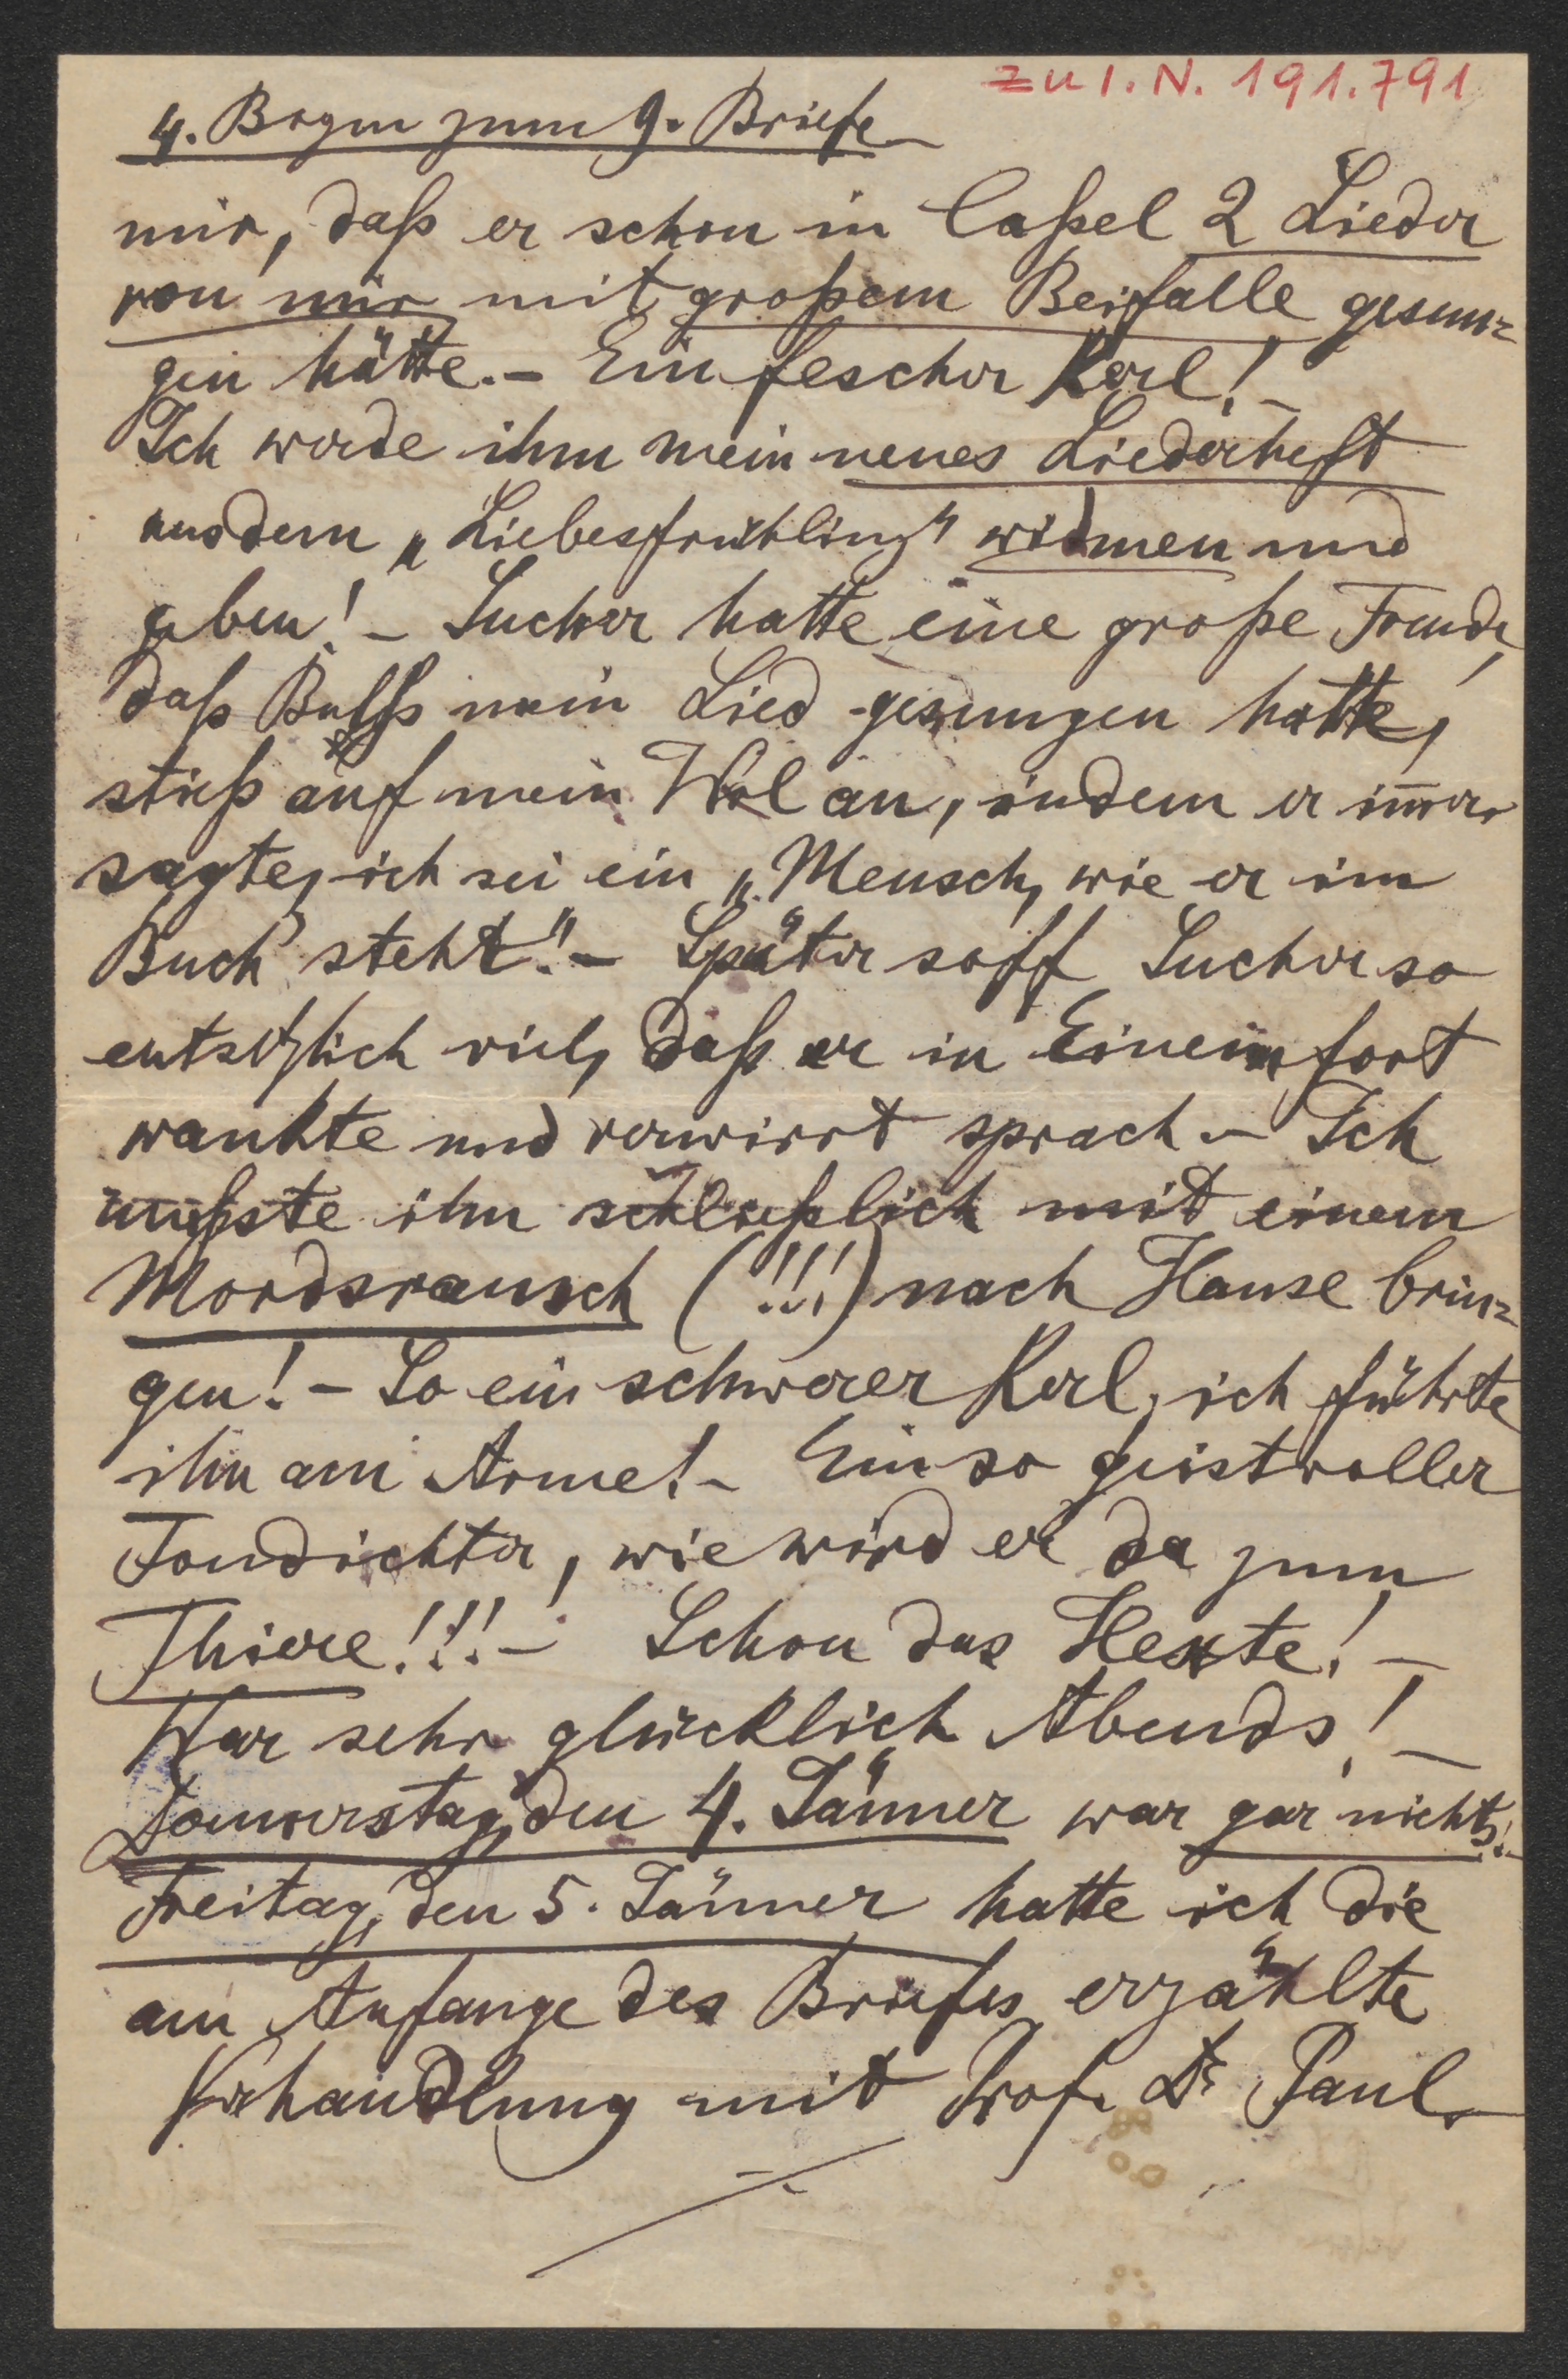 zu I. N. 191.791
4. Bogen zum 9. Briefe
mir, daß er schon in Caßel 2 Lieder
von mir mit großem Beifalle gesun=
gen hätte. – Ein fescher Kerl! –
Ich werde ihm mein neues Liederheft
aus dem „Liebesfrühling" widmen und
geben! – Sucher hatte eine große Freude,
daß Bulß mein Lied gesungen hatte,
stieß auf mein Wol an, indem er im̄er
sagte, ich sei ein „Mensch, wie er im
Buch steht". – Später soff Sucher so
entsetzlich viel, daß er in Einem fort
wankte und verwirrt sprach. – Ich
mußste ihn schließlich mit einem
Mordsrausch (!!!) nach Hause brin=
gen! – So ein schwerer Kerl, ich führte
ihn am Arme! – Ein so geistvoller
Tondichter, wie wird er da zum
Thiere!!! – Schon das Hexte! –
War sehr glücklich Abends! –
Donnerstag, den 4. Jänner war gar nichts! –
Freitag, den 5. Jänner hatte ich die
am Anfange des Briefes erzählte
Verhandlung mit Prof. Dr. Paul.